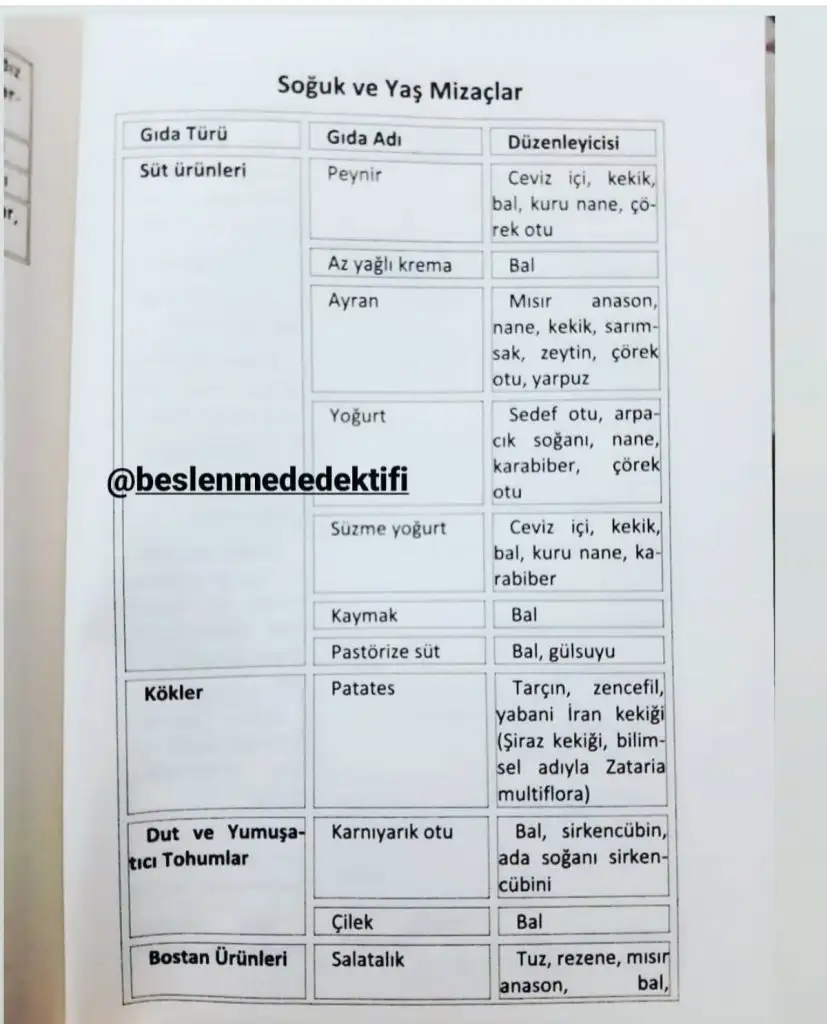 Soğuk ve Yaş Mizaçlar
Gıda Türü
Gıda Adı
Düzenleyicisi
Süt ürünleri
Peynir
Ceviz içi, kekik,
bal, kuru nane, çö-
rek otu
Az yağlı krema
Bal
Ayran
Mısır anason,
nane, kekik, sarım-
sak, zeytin, çörek
otu, yarpuz
Yoğurt
Sedef otu, arpa-
cık soğanı, nane,
karabiber, çörek
otu
@beslenmededektifi
Süzme yoğurt
Ceviz içi, kekik,
bal, kuru nane, ka-
rabiber
Kaymak
Bal
Pastörize süt
Bal, gülsuyu
Kökler
Patates
Tarçın, zencefil,
yabani İran kekiği
(Şiraz kekiği, bilim-
sel adıyla Zataria
multiflora)
Dut ve Yumuşa-
tıcı Tohumlar
Karnıyarık otu
Bal, sirkencübin,
ada soğanı sirken-
cübini
Çilek
Bal
Bostan Ürünleri
Salatalık
Tuz, rezene, mısır
anason, bal,